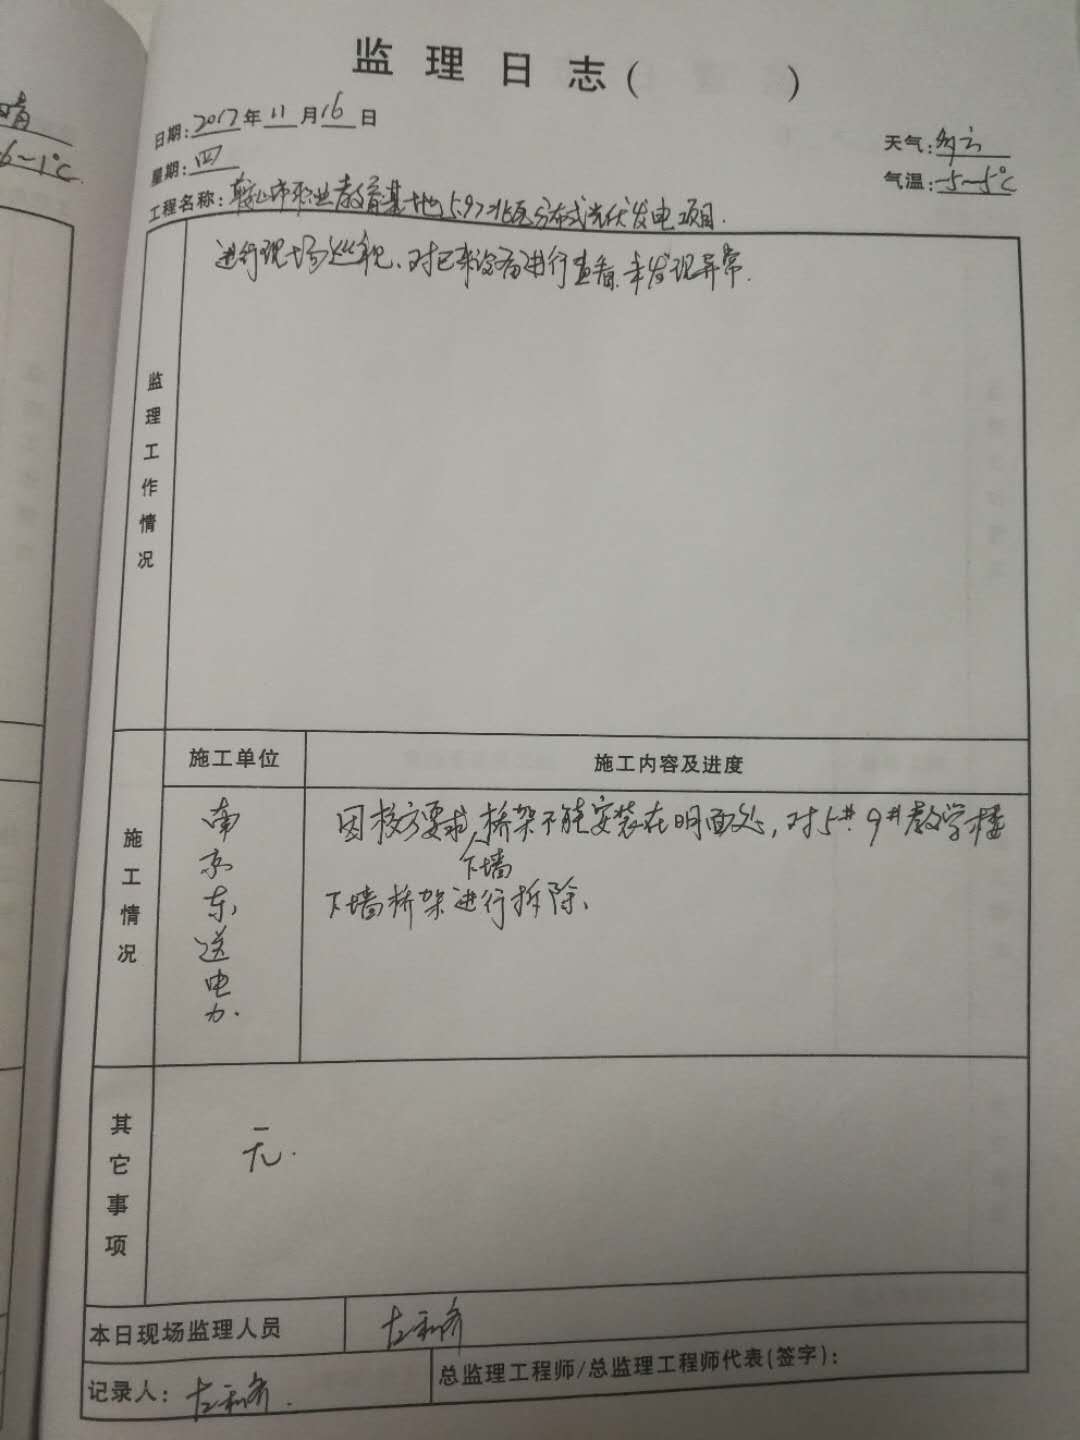 晴
-6~1℃
监理日志( )
日期:2017年11月16日
天气:多云
星期:四
气温:-5~5℃
工程名称:鞍山市职业教育基地5.97兆瓦分布式光伏发电项目.
监理工作情况
进行现场巡视、对已来设备进行查看.未发现异常.
施工情况
施工单位
施工内容及进度
南京东送电力.
因校方要求,桥架不能安装在明面处,对5#.9#教学楼
下墙
下墙桥架进行拆除、
其它事项
无.
本日现场监理人员
记录人:
总监理工程师/总监理工程师代表(签字):